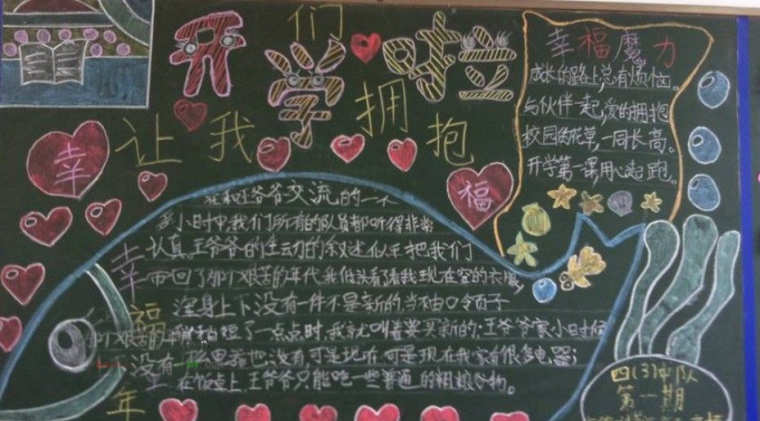 开学啦
让我们拥抱
幸福
幸福魔力
成长的路上总有烦恼。
与伙伴一起，爱的拥抱
校园的花草，一同长高。
开学第一课，用心起跑。
在和王爷爷交流的一个
多小时中，我们所有的队员都听得非常
认真。王爷爷的生动的叙述似乎把我们
带回了那个艰苦的年代。我低头看了看我现在穿的衣服，
浑身上下没有一件不是新的，当袖口、领子
稍稍短了一点点时，我就叫着要买新的；王爷爷家小时候
没有电器也没有，可是现在，可是现在我家有很多电器；
在饭桌上，王爷爷只能吃一些普通的粗粮谷物。
幸福
年
四(3)中队
第一期